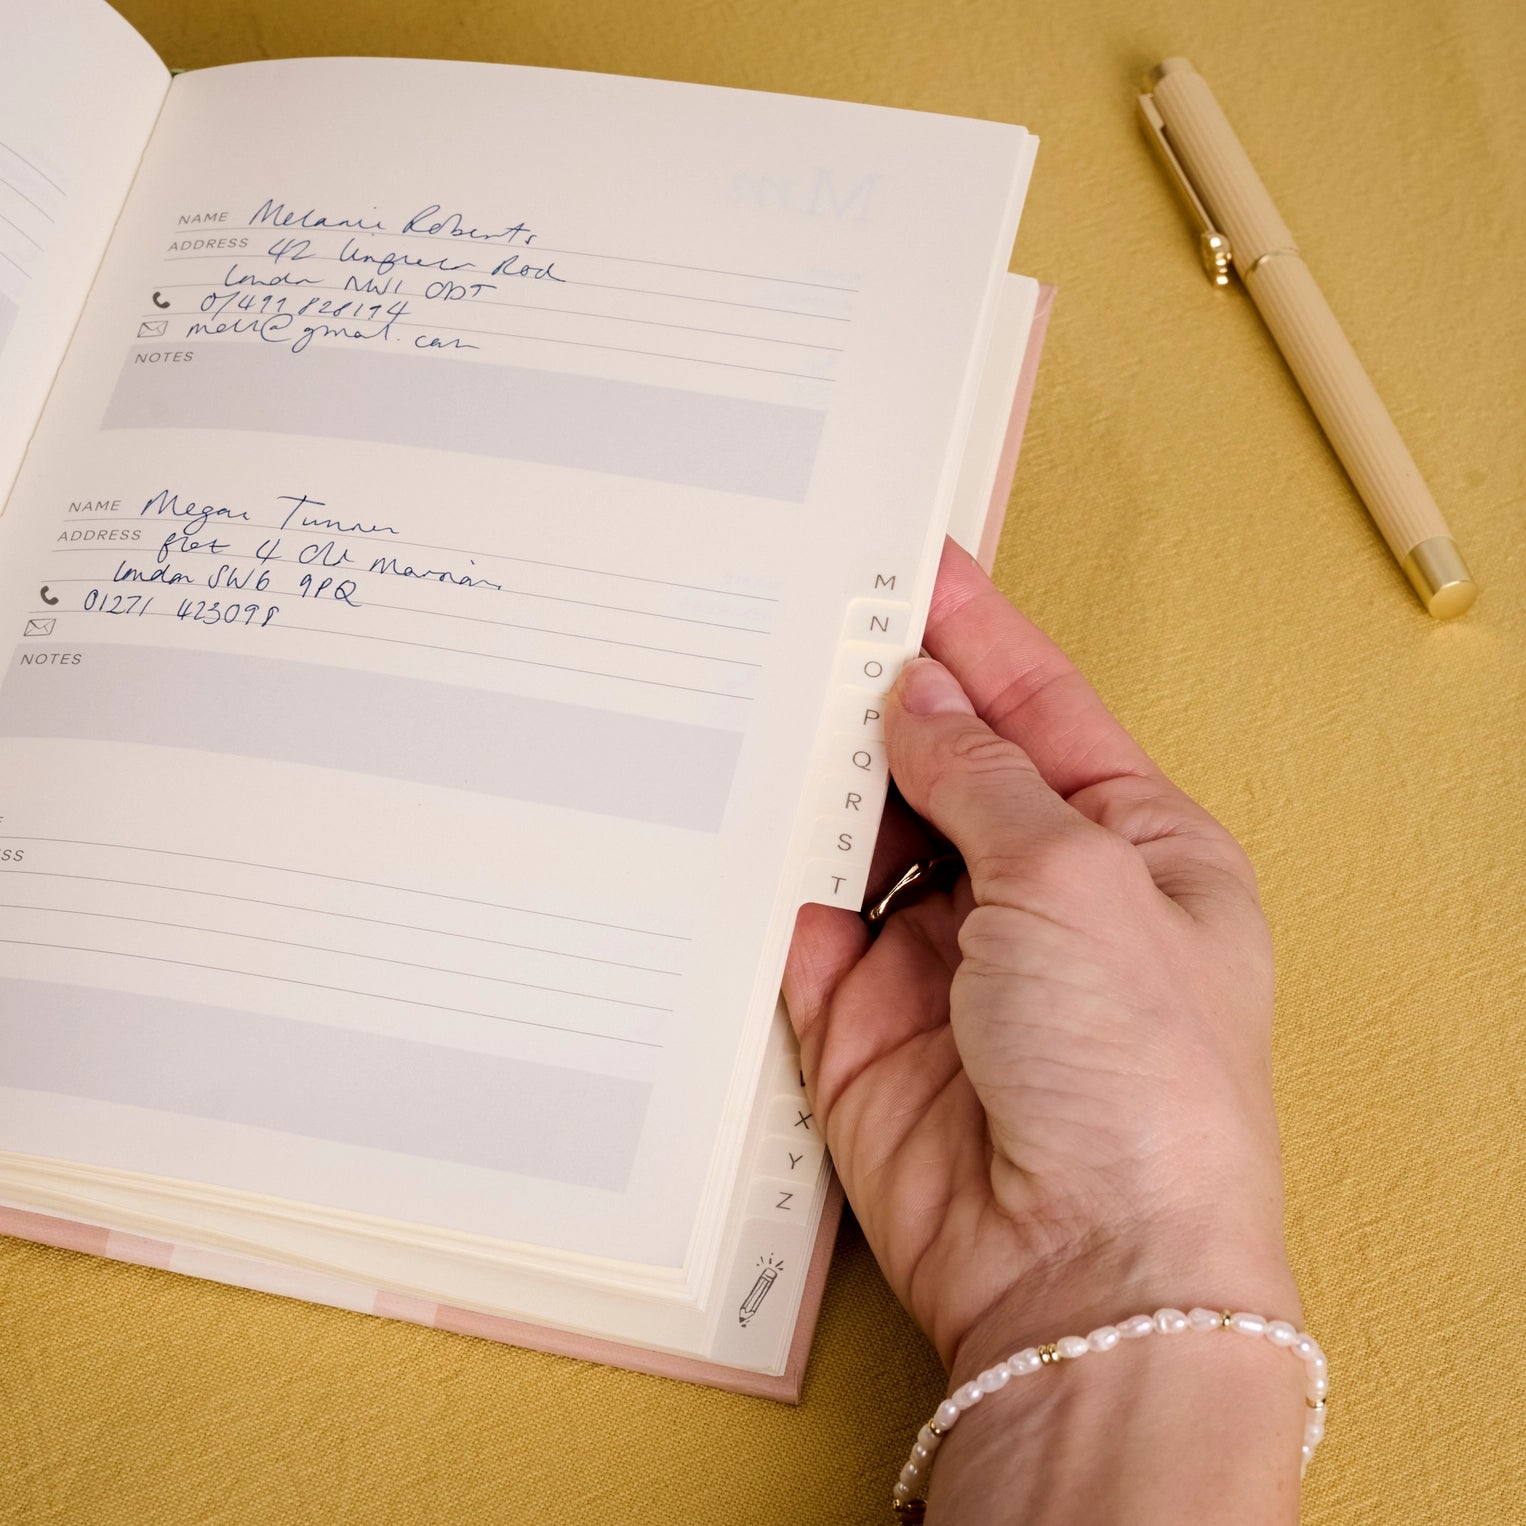 Mm
NAME Melanie Roberts
ADDRESS 42 Road
London NW1 0DT
07499 828194
mell@gmail.com
NOTES
NAME Megan Turner
ADDRESS flat 4 Old Mansions
London SW6 9PQ
01271 423098
NOTES
M
N
O
P
Q
R
S
T
X
Y
Z